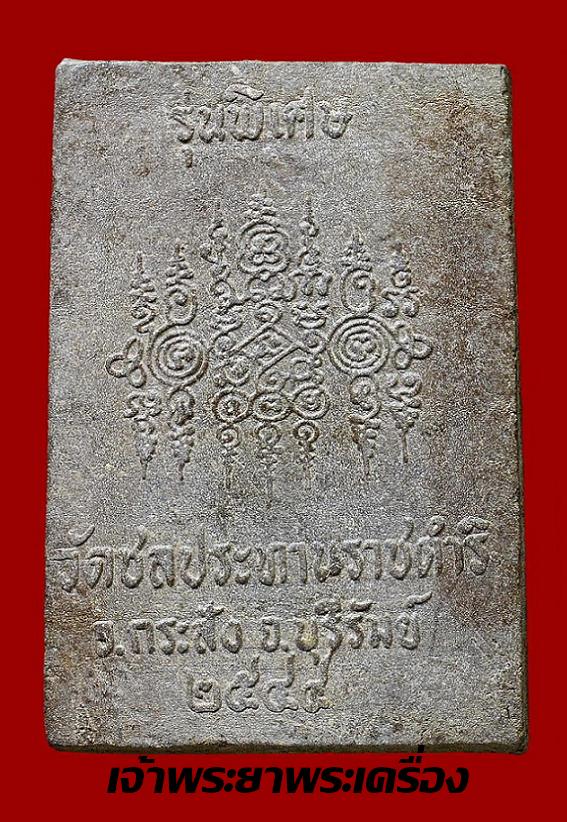 รุ่นพิเศษ
วัดชลประทานราชดำริ
อ.กระสัง จ.บุรีรัมย์
๒๕๔๔
เจ้าพระยาพระเครื่อง